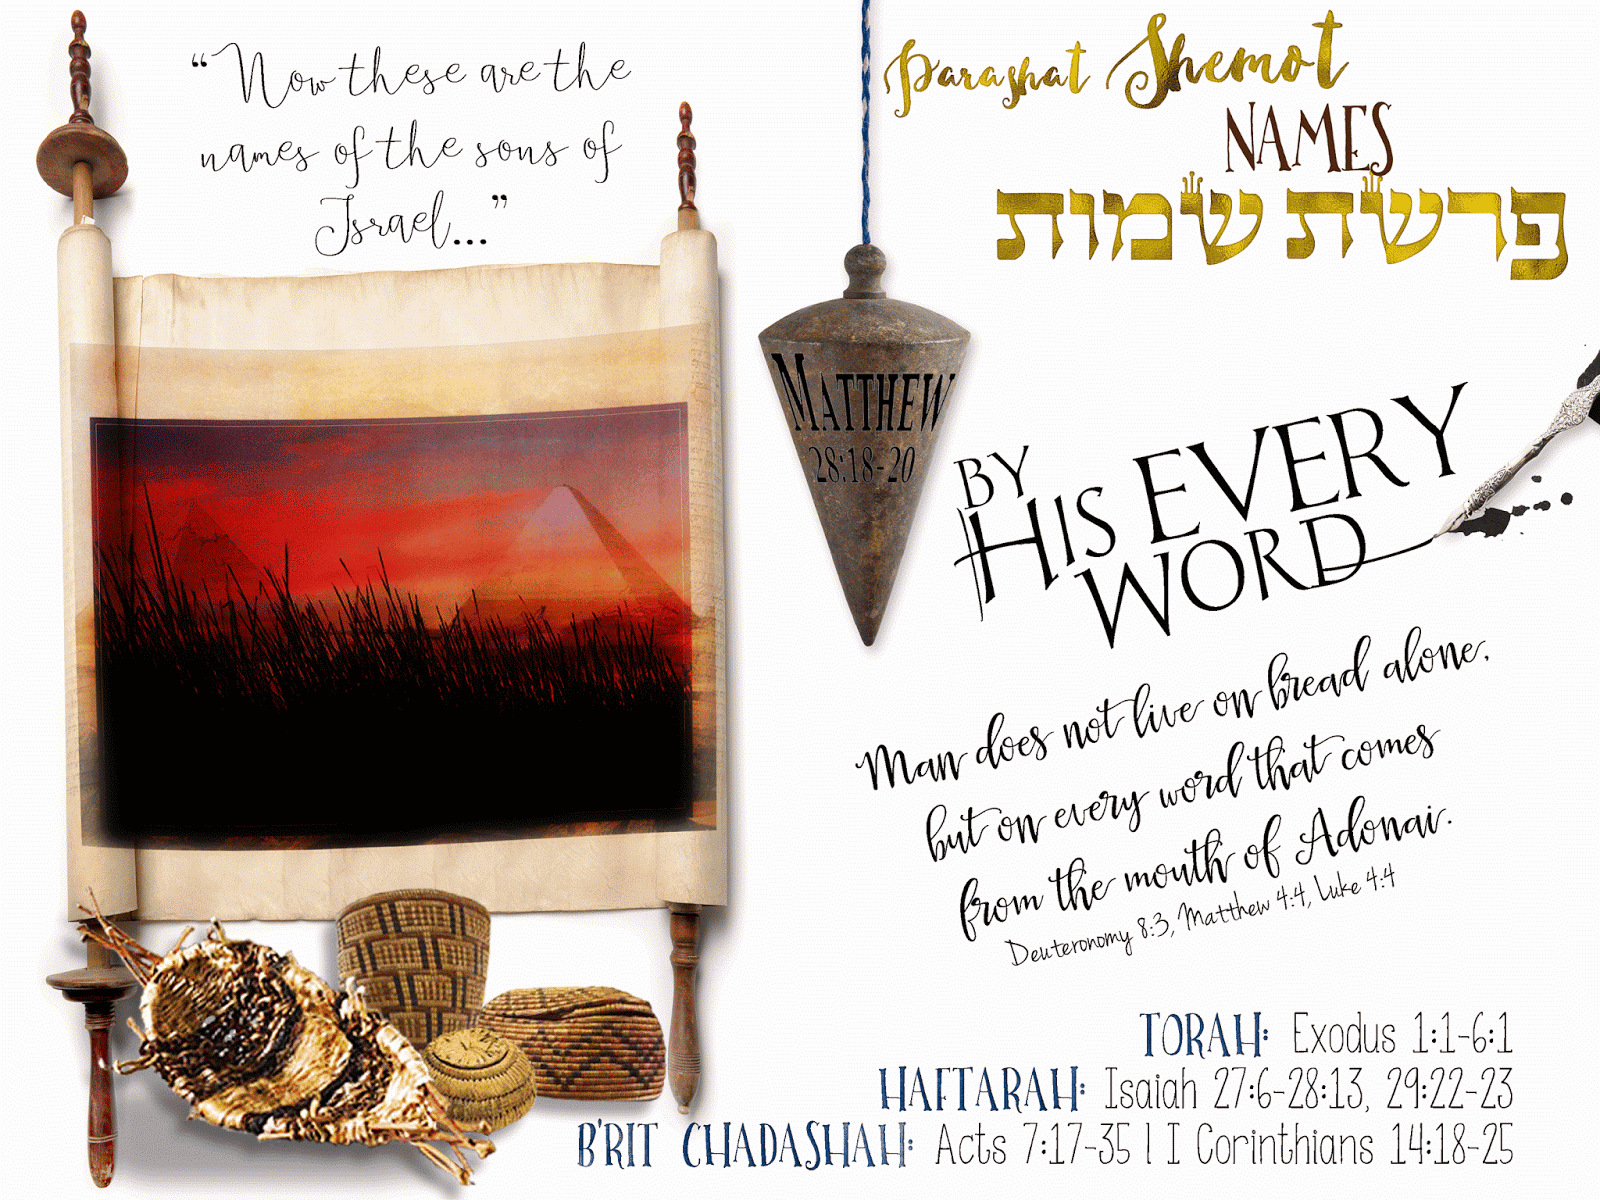 “Now these are the
names of the sons of
Israel...”
Parashat Shemot
NAMES
פרשת שמות
MATTHEW
28:18-20
BY
HIS EVERY
WORD
Man does not live on bread alone,
but on every word that comes
from the mouth of Adonai.
Deuteronomy 8:3, Matthew 4:4, Luke 4:4
TORAH: Exodus 1:1-6:1
HAFTARAH: Isaiah 27:6-28:13, 29:22-23
B'RIT CHADASHAH: Acts 7:17-35 | I Corinthians 14:18-25